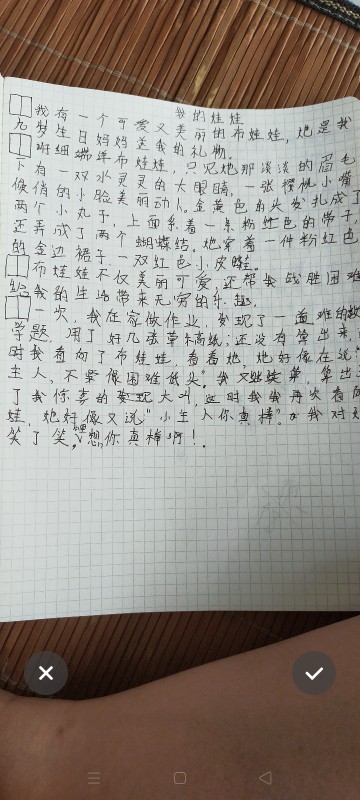 我的娃娃
我有一个可爱又美丽的布娃娃，她是我
九岁生日妈妈送我的礼物。
仔细端详布娃娃，只见她那淡淡的眉毛
下有一双水灵灵的大眼睛，一张樱桃小嘴
俊俏的小脸美丽动人。金黄色的头发扎成了
两个小丸子，上面系着一条粉红色的带子
还弄成了两个蝴蝶结。她穿着一件粉红色
的金边裙子，一双红色小皮鞋。
布娃娃不仅美丽可爱，还帮我战胜困难
给我的生活带来无穷的乐趣。
一次，我在家做作业，发现了一道难的数
学题，用了好几张草稿纸，还没有算出来，
时我看向了布娃娃，看着她，她好像在说
主人，不要像困难低头"。我又继续算，算出
了我惊喜的大叫，这时我再次看向
娃，她好像又说"小主人你真棒"。我对她
笑了笑，想你真棒啊！